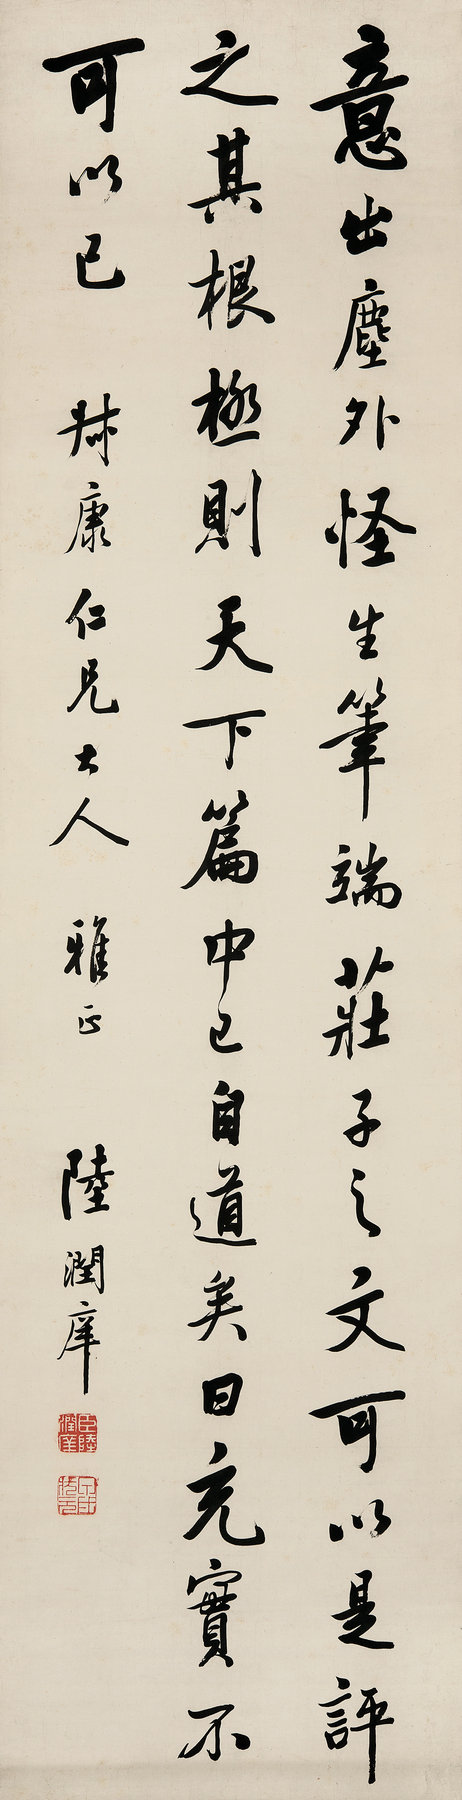 意出塵外怪生筆端莊子之文可以是評
之其根極則天下篇中已自道矣曰充實不
可以已 叔康仁兄大人 雅正 陸潤庠
臣陸潤庠